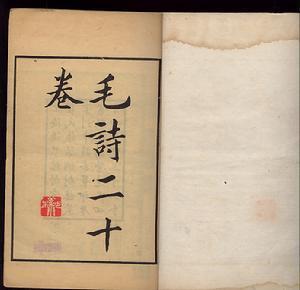 毛詩二十
卷